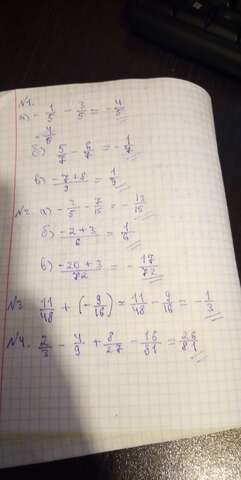 №1.
а) - 1/5 - 3/5 = - 4/5
- 4/5
б) 5/7 - 6/7 = - 1/7
в) -7+8/9 = 1/9
№2. а) - 2/5 - 7/15 = - 13/15
б) -2+3/6 = 1/6
в) -20+3/72 = - 17/72
№3 11/48 + (- 9/16) = 11/48 - 9/16 = - 1/3
№4. 2/3 - 4/9 + 8/27 - 16/81 = 26/81